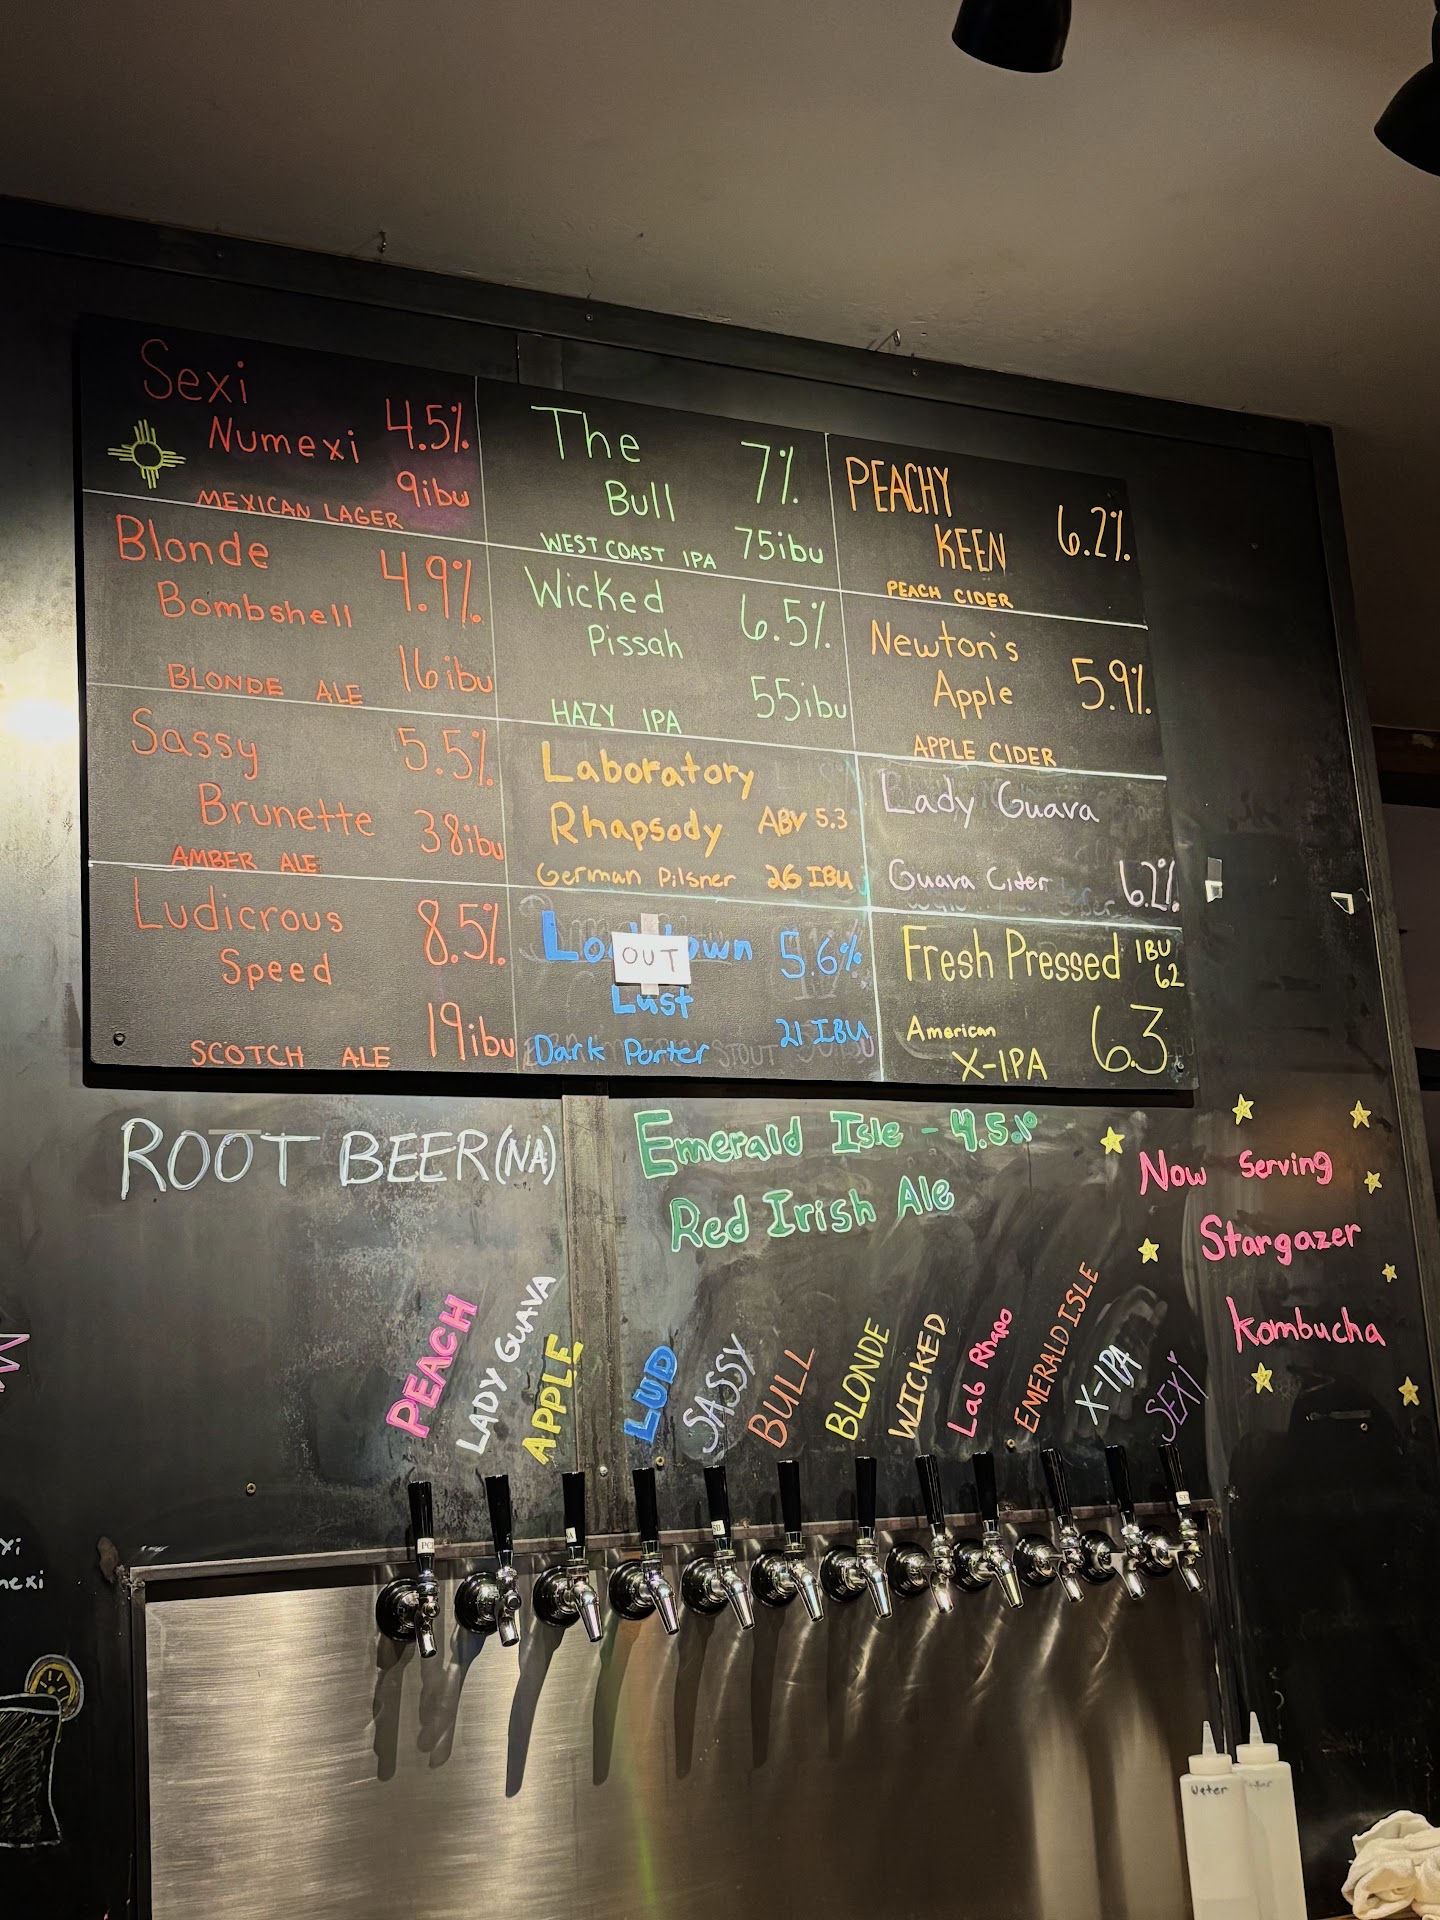 Sexi
Numexi
4.5%
9ibu
MEXICAN LAGER
Blonde
Bombshell
4.9%
16ibu
BLONDE ALE
Sassy
Brunette
5.5%
38ibu
AMBER ALE
Ludicrous
Speed
8.5%
19ibu
SCOTCH ALE
The
Bull
7%
75ibu
WEST COAST IPA
Wicked
Pissah
6.5%
55ibu
HAZY IPA
Laboratory
Rhapsody ABV 5.3
German Pilsner 26 IBU
OUT
5.6%
Lust
Dark Porter 21 IBU
PEACHY
KEEN
6.2%
PEACH CIDER
Newton's
Apple
5.9%
APPLE CIDER
Lady Guava
Guava Cider 6.2%
Fresh Pressed IBU
62
American
X-IPA
6.3
ROOT BEER (NA)
Emerald Isle - 4.5%
Red Irish Ale
Now Serving
Stargazer
Kombucha
PEACH
LADY GUAVA
APPLE
LUD
SASSY
BULL
BLONDE
WICKED
Lab Rhapo
EMERALD ISLE
X-IPA
SEXI
Water